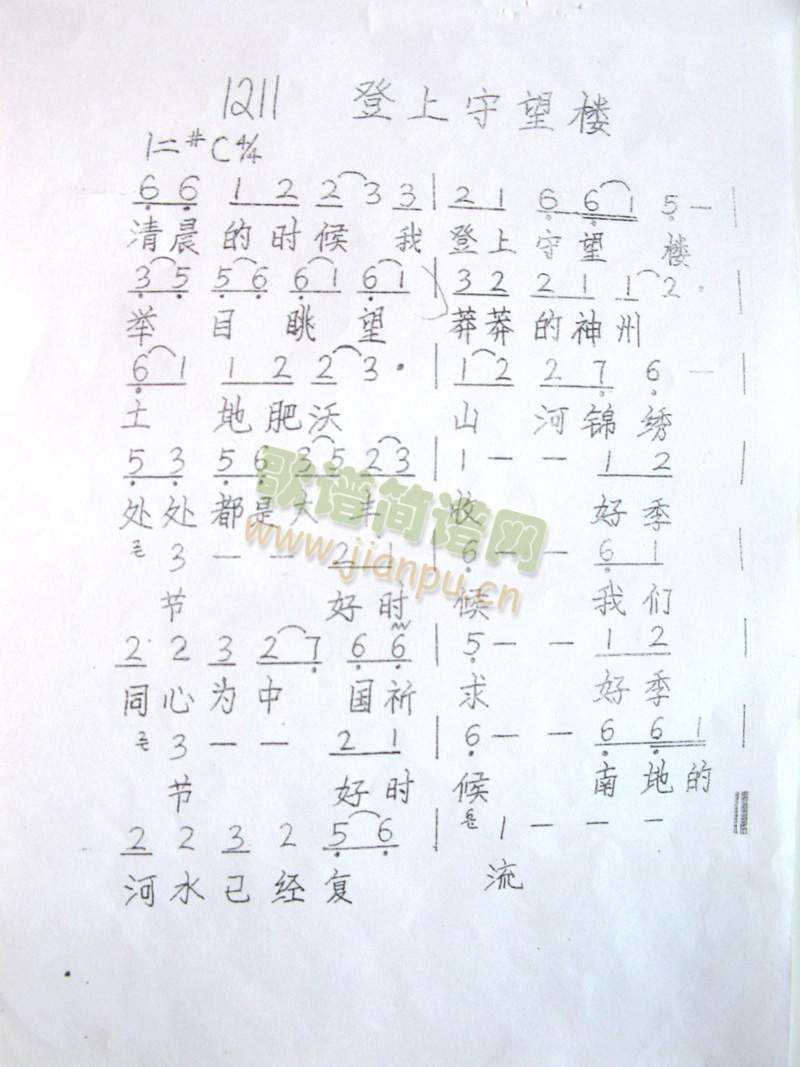 1211 登上守望楼
1=#C 4/4
6 6 1 2 2 3 3 | 2 1 6 6 1 5 — |
清晨的时候 我 登上守望 楼
3 5 5 6 6 1 6 1 | 3 2 2 1 1 2 .
举 目 眺 望 莽莽的神州
6 1 1 2 2 3 . | 1 2 2 7 6 — |
土 地肥沃 山 河锦绣
5 3 5 6 3 5 2 3 | 1 — — 1 2 |
处处都是大丰 收 好季
3 — — 2 1 | 6 — — 6 1 |
节 好时 候 我们
2 2 3 2 7 6 6 | 5 — — 1 2 |
同心为中 国祈 求 好季
3 — — 2 1 | 6 — — 6 6 1 |
节 好时 候 南地的
2 2 3 2 5 6 | 1 — — —
河水已经复 流
歌谱简谱网
www.jianpu.cn